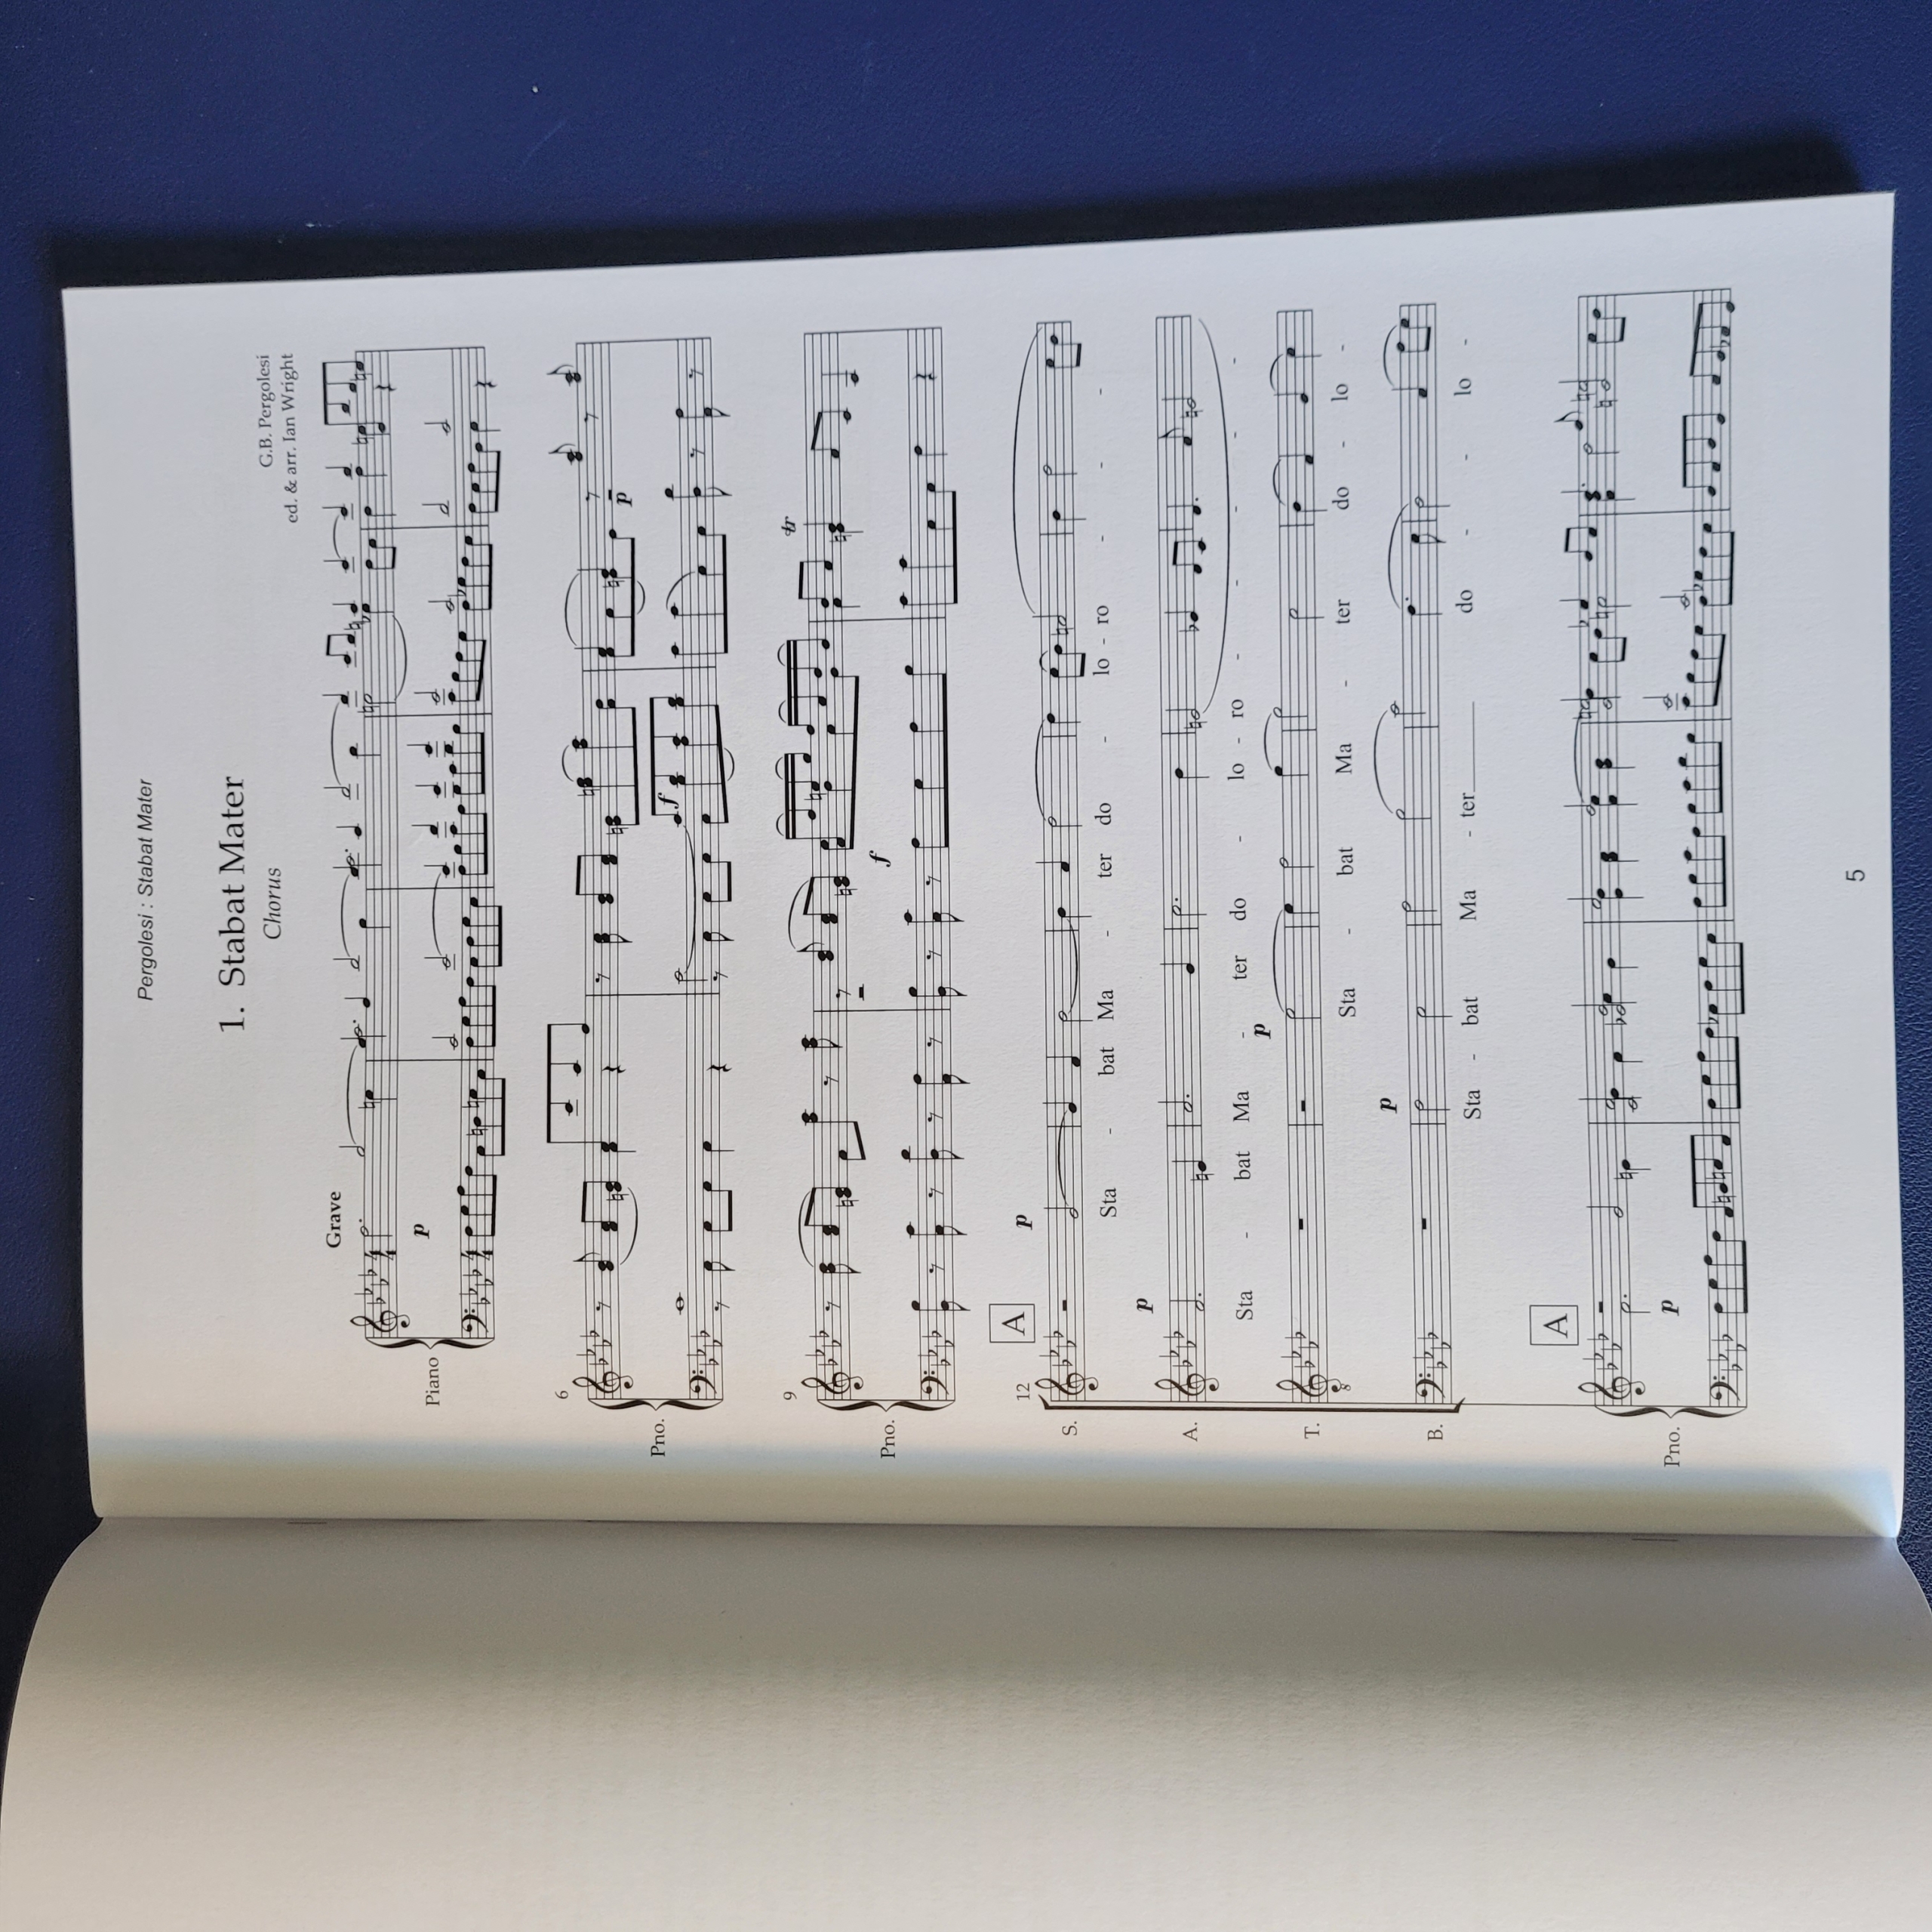 Pergolesi : Stabat Mater
1. Stabat Mater
Chorus
G.B. Pergolesi
ed. & arr. Ian Wright
Grave
Piano
p
6
Pno.
f
p
9
Pno.
f
tr
12
A
S.
p
Sta - bat Ma - ter do - lo - ro - - - -
A.
p
Sta - bat Ma - ter do - lo - ro - - - - -
T.
p
Sta - bat Ma - ter do - lo -
8
B.
p
Sta - bat Ma - ter do - - lo -
A
Pno.
p
5